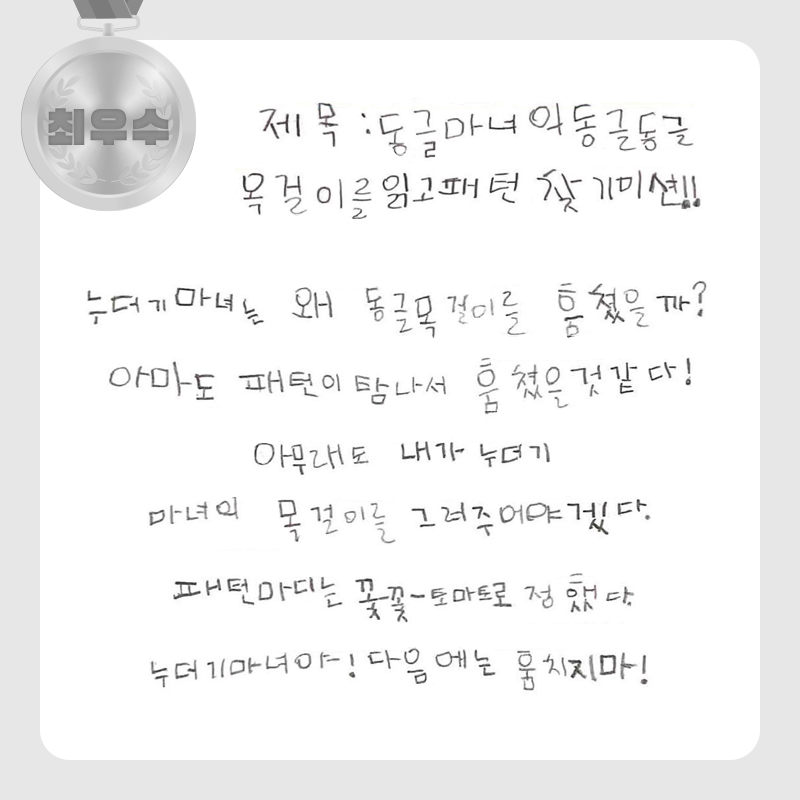 최우수
제목:동글마녀의동글동글
목걸이를읽고패턴 찾기미션!!
누더기마녀는 왜 동글목걸이를 훔쳤을까?
아마도 패턴이 탐나서 훔쳤을것같다!
아무래도 내가 누더기
마녀의 목걸이를 그려주어야겠다.
패턴마디는 꽃꽃-토마토로 정했다.
누더기마녀야! 다음에는 훔치지마!